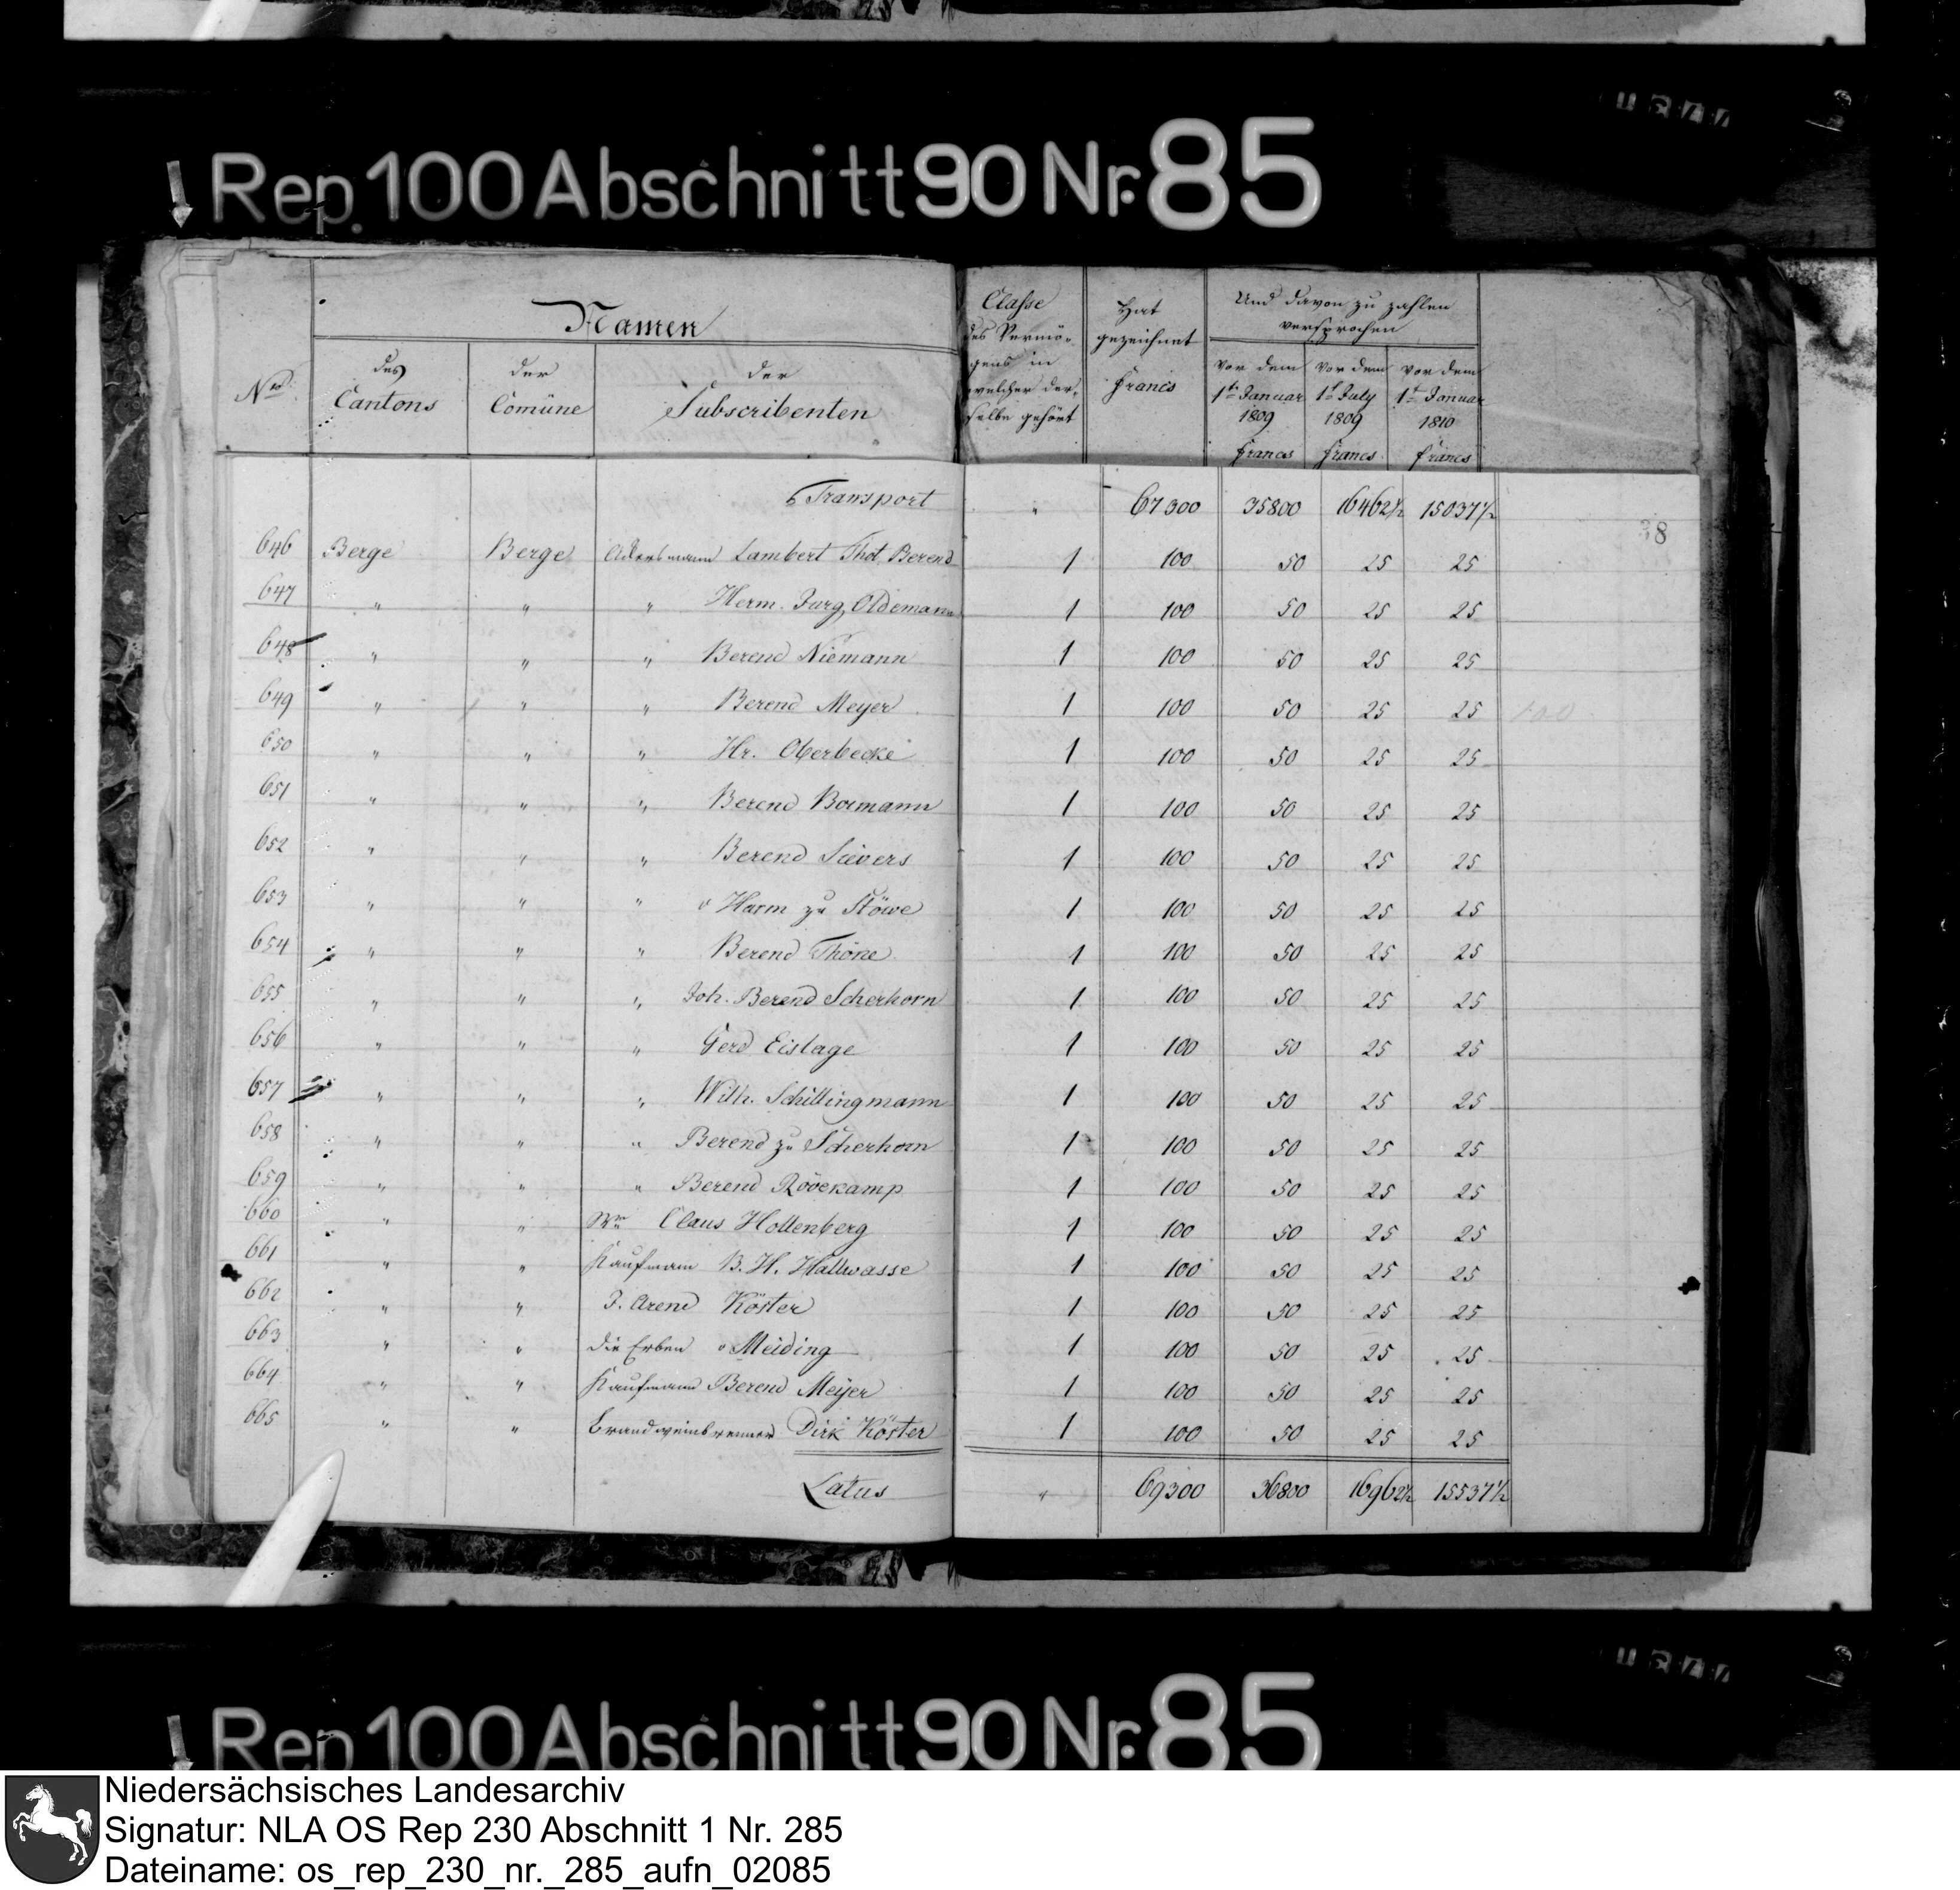 Rep. 100 Abschnitt 90 Nr. 85
Namen
No. des Cantons der Comüne der Subscribenten Classe des Vermögens in welcher derselbe gehört Hat gezeichnet Francs Und davon zu zahlen versprochen
vor dem 1ten Januar 1809 Francs vor dem 1ten July 1809 Francs vor dem 1ten Januar 1810 Francs
Transport " 67300 35800 16462½ 15037½
38
646 Berge Berge Ackersmann Lambert Thot. Berend 1 100 50 25 25
647 " " " Herm. Jurg. Oldemann 1 100 50 25 25
648 " " " Berend Niemann 1 100 50 25 25
649 " " " Berend Meyer 1 100 50 25 25 100
650 " " " Hr. Oberbecke 1 100 50 25 25
651 " " " Berend Bormann 1 100 50 25 25
652 " " " Berend Sievers 1 100 50 25 25
653 " " " Harm zu Stöwe 1 100 50 25 25
654 " " " Berend Thöne 1 100 50 25 25
655 " " " Joh. Berend Scherhorn 1 100 50 25 25
656 " " " Gerd Eislage 1 100 50 25 25
657 " " " Wilh. Schillingmann 1 100 50 25 25
658 " " " Berend zu Scherhorn 1 100 50 25 25
659 " " " Berend Rövekamp 1 100 50 25 25
660 " " Claus Hollenberg 1 100 50 25 25
661 " " Kaufmann B. H. Hallwasse 1 100 50 25 25
662 " " J. Arend Köster 1 100 50 25 25
663 " " die Erben v Meiding 1 100 50 25 25
664 " " Kaufmann Berend Meyer 1 100 50 25 25
665 " " Brandweinbrenner Dirk Köster 1 100 50 25 25
Latus " 69300 36800 16962½ 15537½
Rep. 100 Abschnitt 90 Nr. 85
Niedersächsisches Landesarchiv
Signatur: NLA OS Rep 230 Abschnitt 1 Nr. 285
Dateiname: os_rep_230_nr._285_aufn_02085